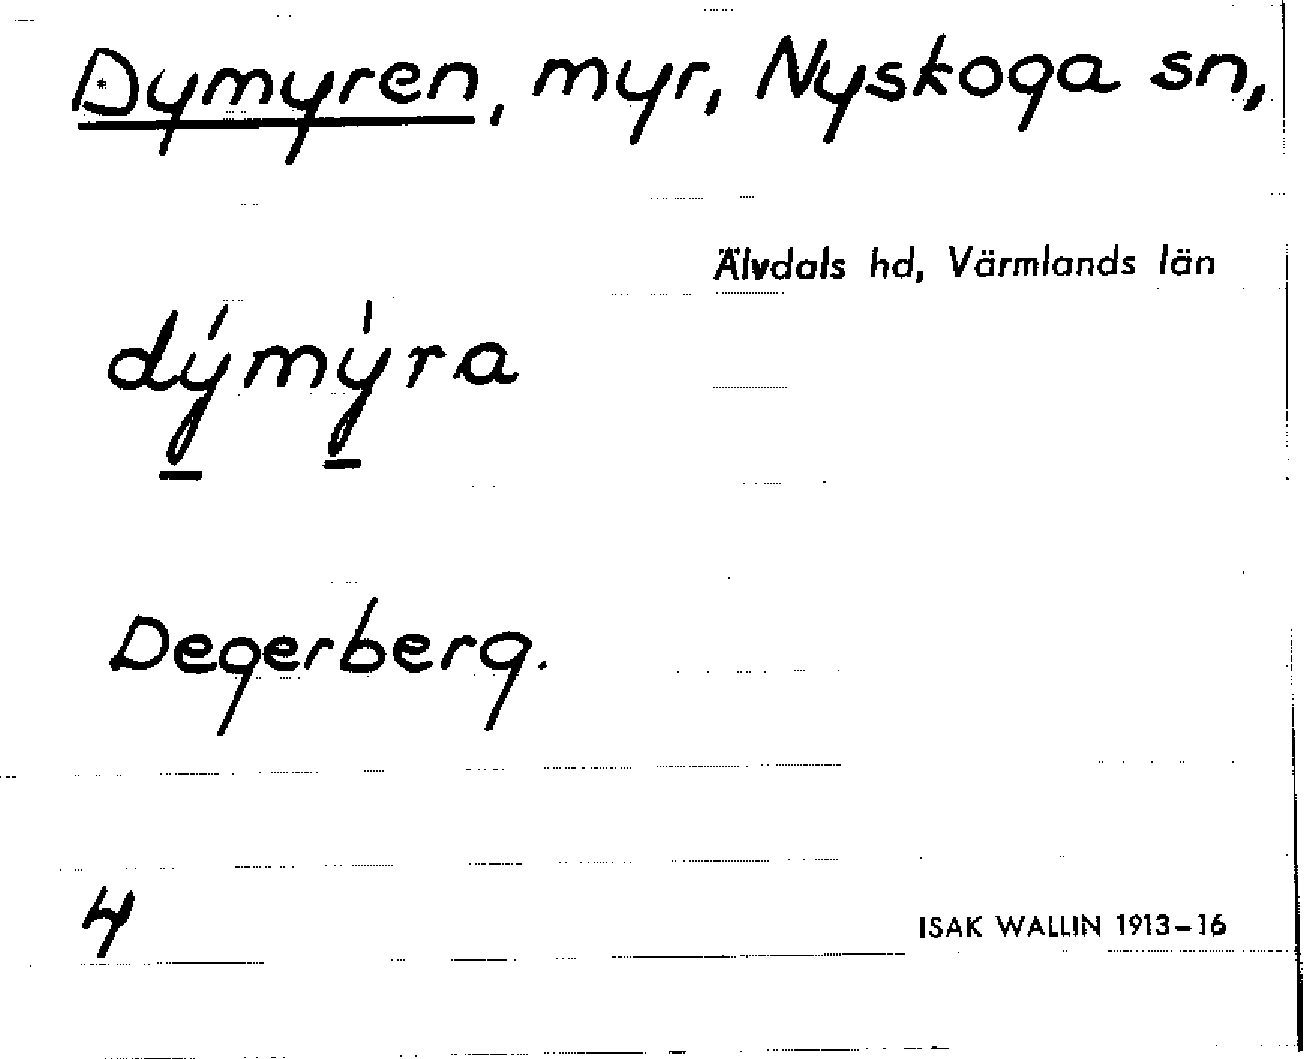 Dymyren, myr, Nyskoga sn,
Älvdals hd, Värmlands län
dýmýra
Degerberg.
4
ISAK WALLIN 1913–16